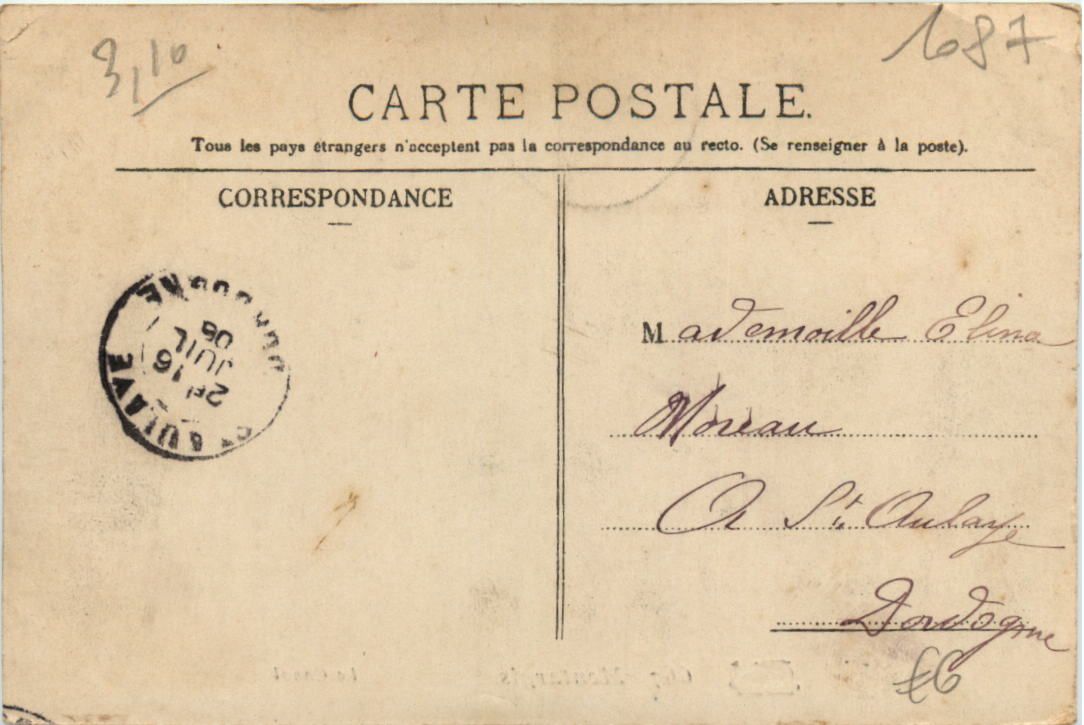 3,10
1687
CARTE POSTALE.
Tous les pays étrangers n'acceptent pas la correspondance au recto. (Se renseigner à la poste).
CORRESPONDANCE
ADRESSE
Mademoille Elina
Moreau
A St. Aulaye
Dordogne
£6
ST AULAYE
DORDOGNE
16
JUIL
06